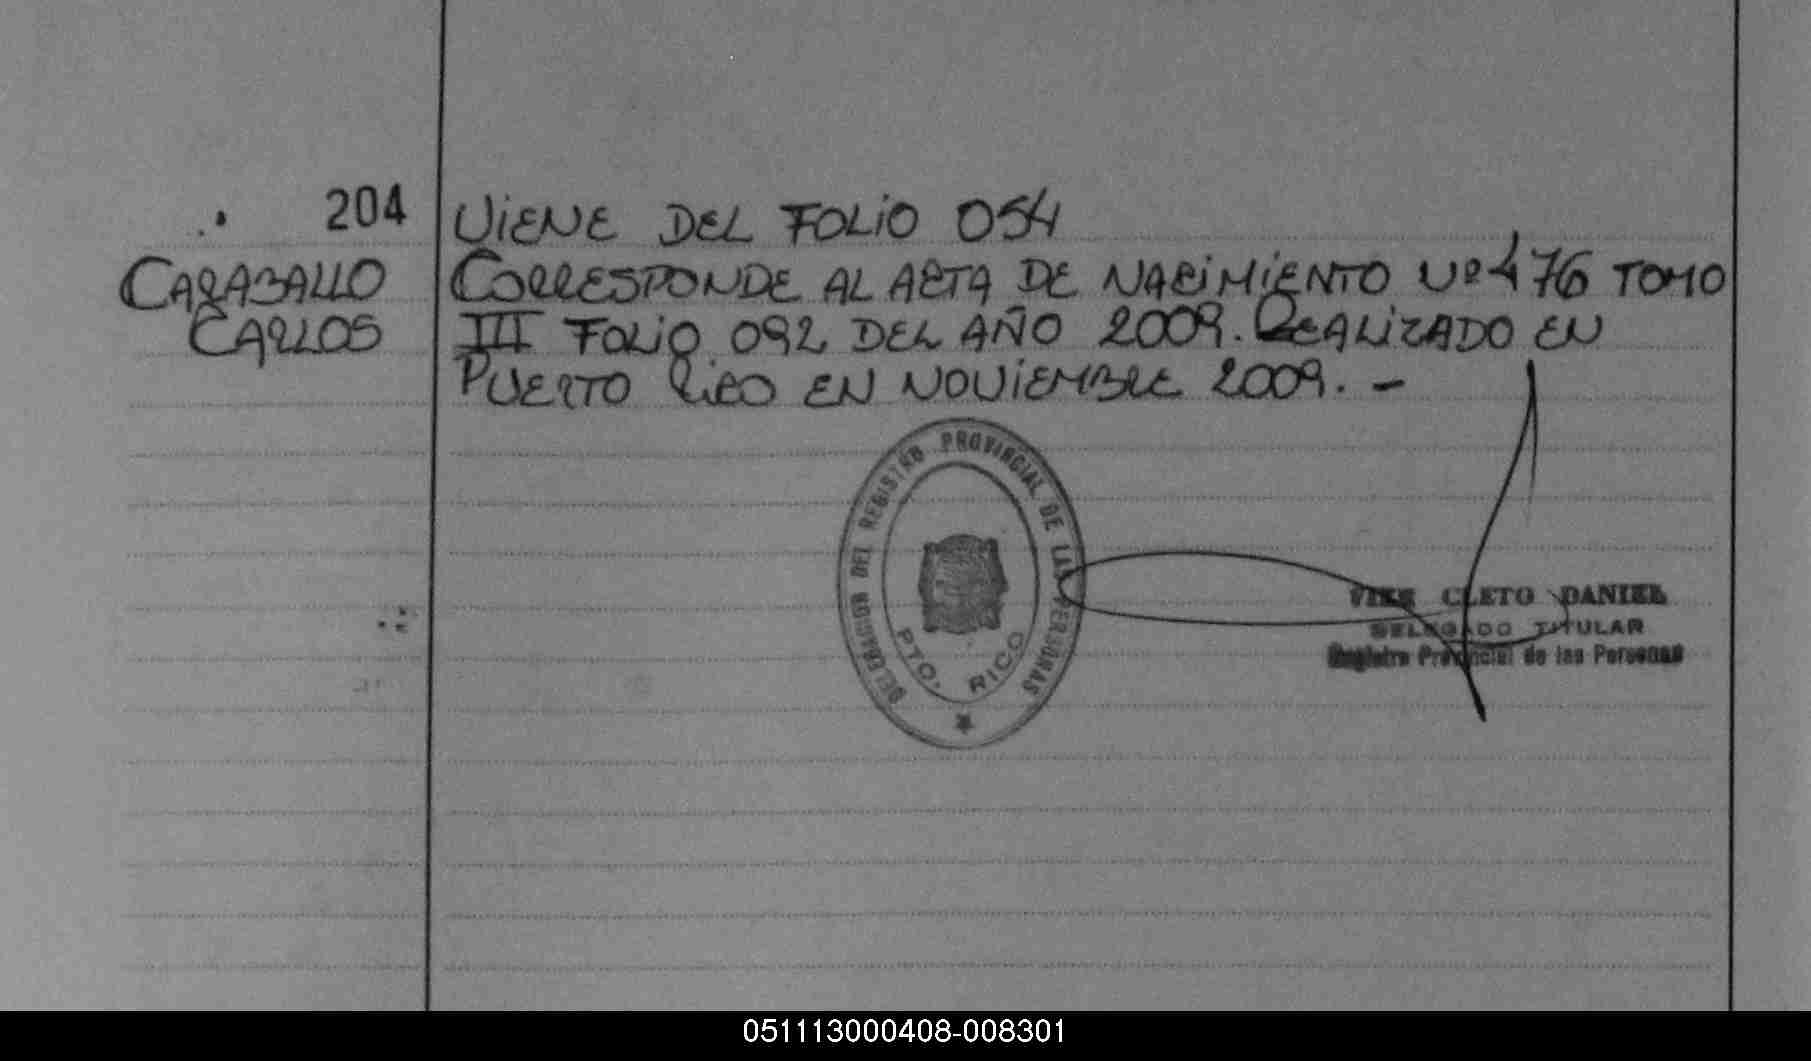 204
CARABALLO
CARLOS
VIENE DEL FOLIO 054
CORRESPONDE AL ACTA DE NACIMIENTO Nº 476 TOMO
III FOLIO 092 DEL AÑO 2009. REALIZADO EN
PUERTO RICO EN NOVIEMBRE 2009. -
DELEGACION DEL REGISTRO PROVINCIAL DE LAS PERSONAS
PTO. RICO
CLETO DANIEL
DELEGADO TITULAR
Registro Provincial de las Personas
051113000408-008301